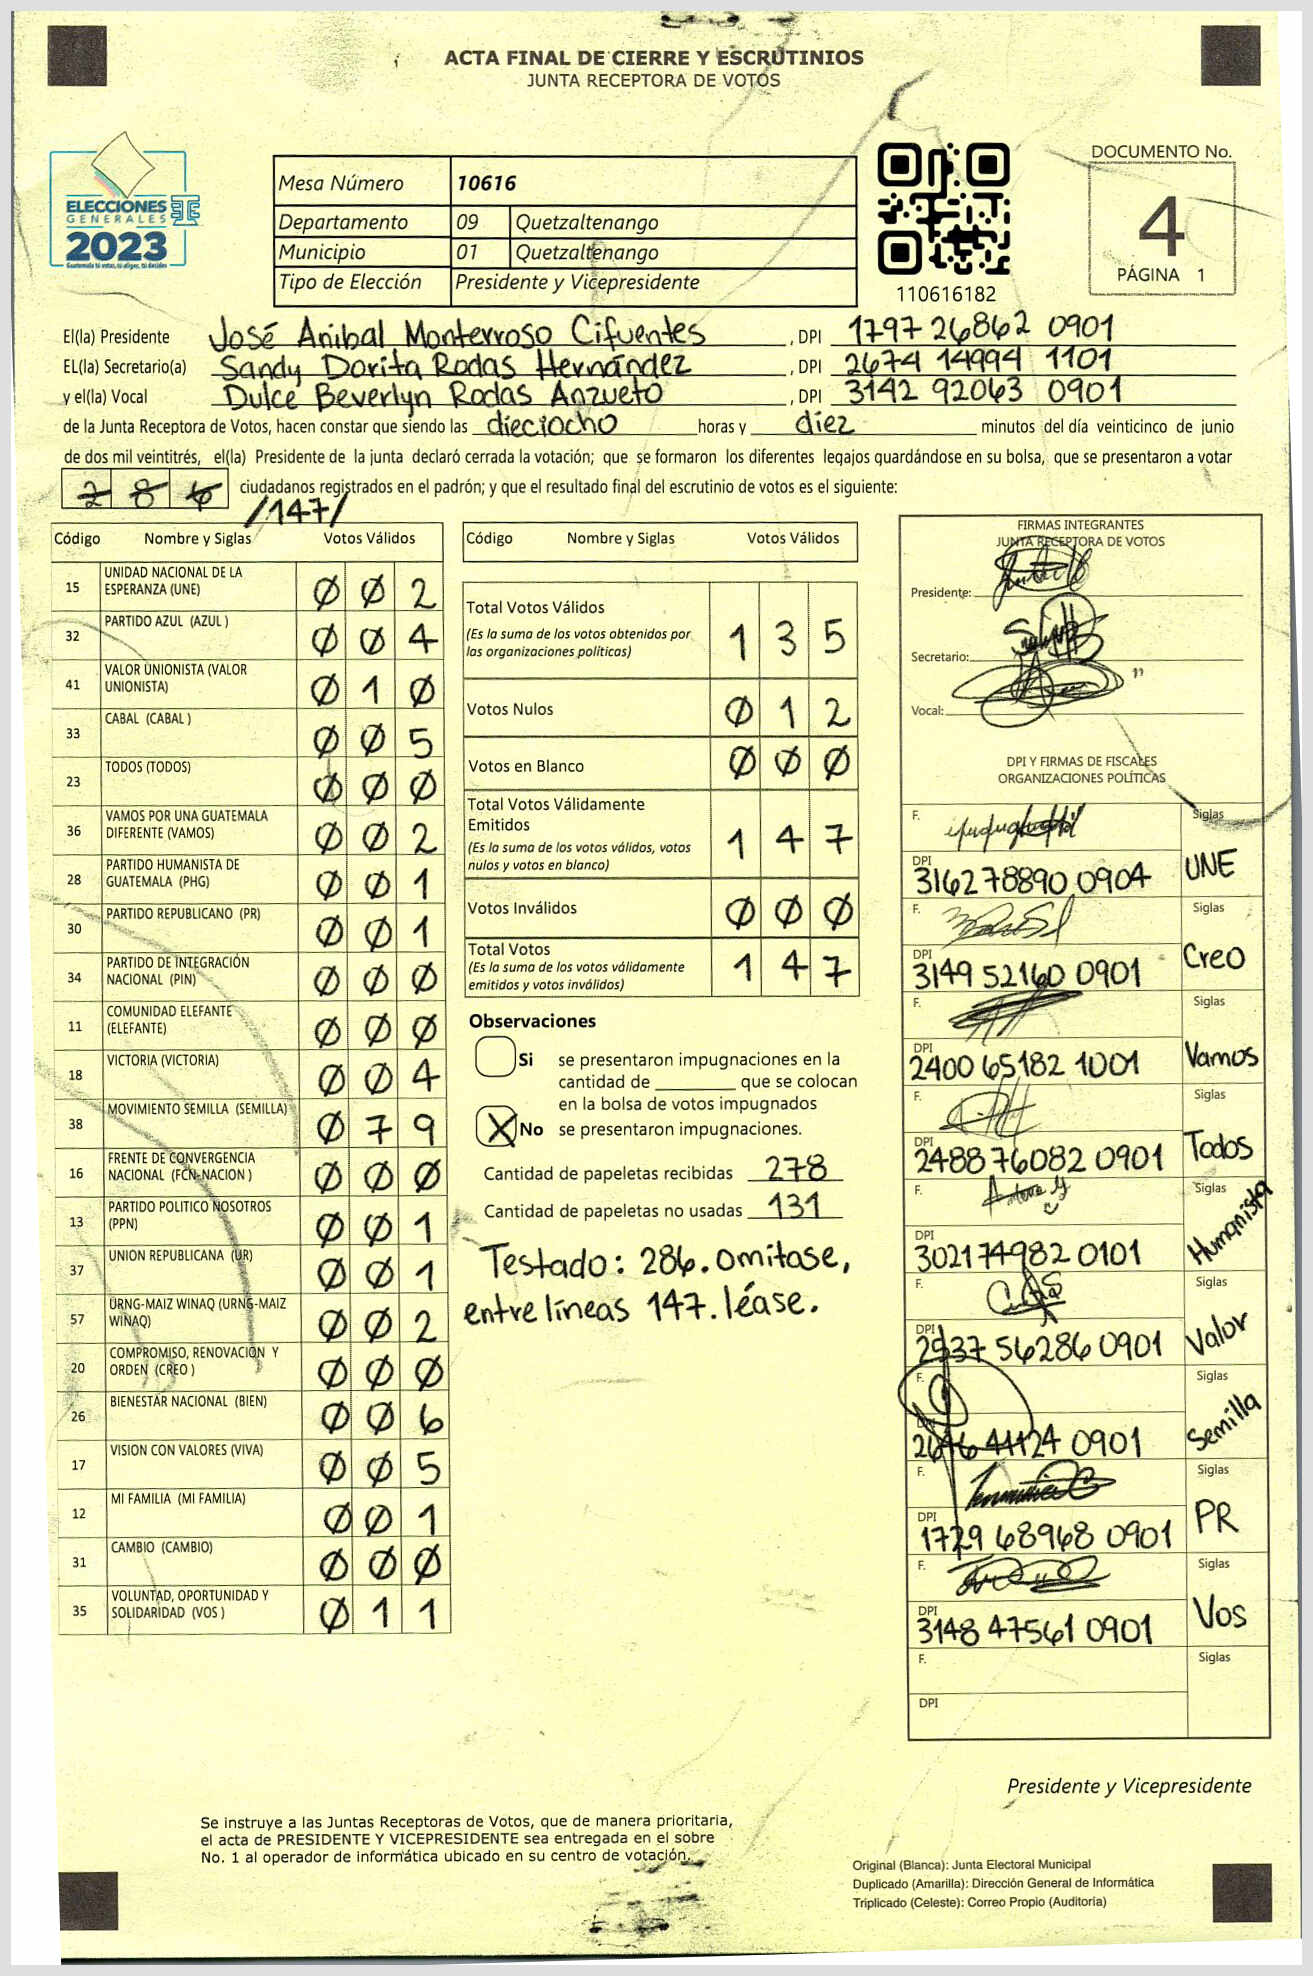 ACTA FINAL DE CIERRE Y ESCRUTINIOS
JUNTA RECEPTORA DE VOTOS
ELECCIONES
GENERALES
2023
Guatemala tú votas, tú eliges, tú decides
Mesa Número 10616
Departamento 09 Quetzaltenango
Municipio 01 Quetzaltenango
Tipo de Elección Presidente y Vicepresidente
110616182
DOCUMENTO No.
4
PÁGINA 1
El(la) Presidente José Anibal Monterroso Cifuentes, DPI 1797 26862 0901
EL(la) Secretario(a) Sandy Dorita Rodas Hernández, DPI 2674 14994 1101
y el(la) Vocal Dulce Beverlyn Rodas Anzueto, DPI 3142 92063 0901
de la Junta Receptora de Votos, hacen constar que siendo las dieciocho horas y diez minutos del día veinticinco de junio
de dos mil veintitrés, el(la) Presidente de la junta declaró cerrada la votación; que se formaron los diferentes legajos quardándose en su bolsa, que se presentaron a votar
286 ciudadanos registrados en el padrón; y que el resultado final del escrutinio de votos es el siguiente:
/147/
Código Nombre y Siglas Votos Válidos
15 UNIDAD NACIONAL DE LA ESPERANZA (UNE) 0 0 2
32 PARTIDO AZUL (AZUL ) 0 0 4
41 VALOR UNIONISTA (VALOR UNIONISTA) 0 1 0
33 CABAL (CABAL ) 0 0 5
23 TODOS (TODOS) 0 0 0
36 VAMOS POR UNA GUATEMALA DIFERENTE (VAMOS) 0 0 2
28 PARTIDO HUMANISTA DE GUATEMALA (PHG) 0 0 1
30 PARTIDO REPUBLICANO (PR) 0 0 1
34 PARTIDO DE INTEGRACIÓN NACIONAL (PIN) 0 0 0
11 COMUNIDAD ELEFANTE (ELEFANTE) 0 0 0
18 VICTORIA (VICTORIA) 0 0 4
38 MOVIMIENTO SEMILLA (SEMILLA) 0 7 9
16 FRENTE DE CONVERGENCIA NACIONAL (FCN-NACION ) 0 0 0
13 PARTIDO POLITICO NOSOTROS (PPN) 0 0 1
37 UNION REPUBLICANA (UR) 0 0 1
57 URNG-MAIZ WINAQ (URNG-MAIZ WINAQ) 0 0 2
20 COMPROMISO, RENOVACIÓN Y ORDEN (CREO ) 0 0 0
26 BIENESTAR NACIONAL (BIEN) 0 0 6
17 VISION CON VALORES (VIVA) 0 0 5
12 MI FAMILIA (MI FAMILIA) 0 0 1
31 CAMBIO (CAMBIO) 0 0 0
35 VOLUNTAD, OPORTUNIDAD Y SOLIDARIDAD (VOS ) 0 1 1
Código Nombre y Siglas Votos Válidos
Total Votos Válidos 1 3 5
(Es la suma de los votos obtenidos por
las organizaciones políticas)
Votos Nulos 0 1 2
Votos en Blanco 0 0 0
Total Votos Válidamente
Emitidos 1 4 7
(Es la suma de los votos válidos, votos
nulos y votos en blanco)
Votos Inválidos 0 0 0
Total Votos 1 4 7
(Es la suma de los votos válidamente
emitidos y votos inválidos)
Observaciones
Si se presentaron impugnaciones en la
cantidad de ________ que se colocan
en la bolsa de votos impugnados
X No se presentaron impugnaciones.
Cantidad de papeletas recibidas 278
Cantidad de papeletas no usadas 131
Testado: 286. omitase,
entre líneas 147. léase.
FIRMAS INTEGRANTES
JUNTA RECEPTORA DE VOTOS
Presidente:
Secretario:
Vocal:
DPI Y FIRMAS DE FISCALES
ORGANIZACIONES POLÍTICAS
F. Siglas
DPI 3162 78890 0904 UNE
F. Siglas
DPI 3149 52160 0901 Creo
F. Siglas
DPI 2400 65182 1001 Vamos
F. Siglas
DPI 2488 76082 0901 Todos
F. Siglas
DPI 3021 74982 0101 Humanista
F. Siglas
DPI 2937 56286 0901 Valor
F. Siglas
DPI 2646 44124 0901 Semilla
F. Siglas
DPI 1729 68968 0901 PR
F. Siglas
DPI 3148 47561 0901 Vos
F. Siglas
DPI
Presidente y Vicepresidente
Se instruye a las Juntas Receptoras de Votos, que de manera prioritaria,
el acta de PRESIDENTE Y VICEPRESIDENTE sea entregada en el sobre
No. 1 al operador de informática ubicado en su centro de votación.
Original (Blanca): Junta Electoral Municipal
Duplicado (Amarilla): Dirección General de Informática
Triplicado (Celeste): Correo Propio (Auditoría)